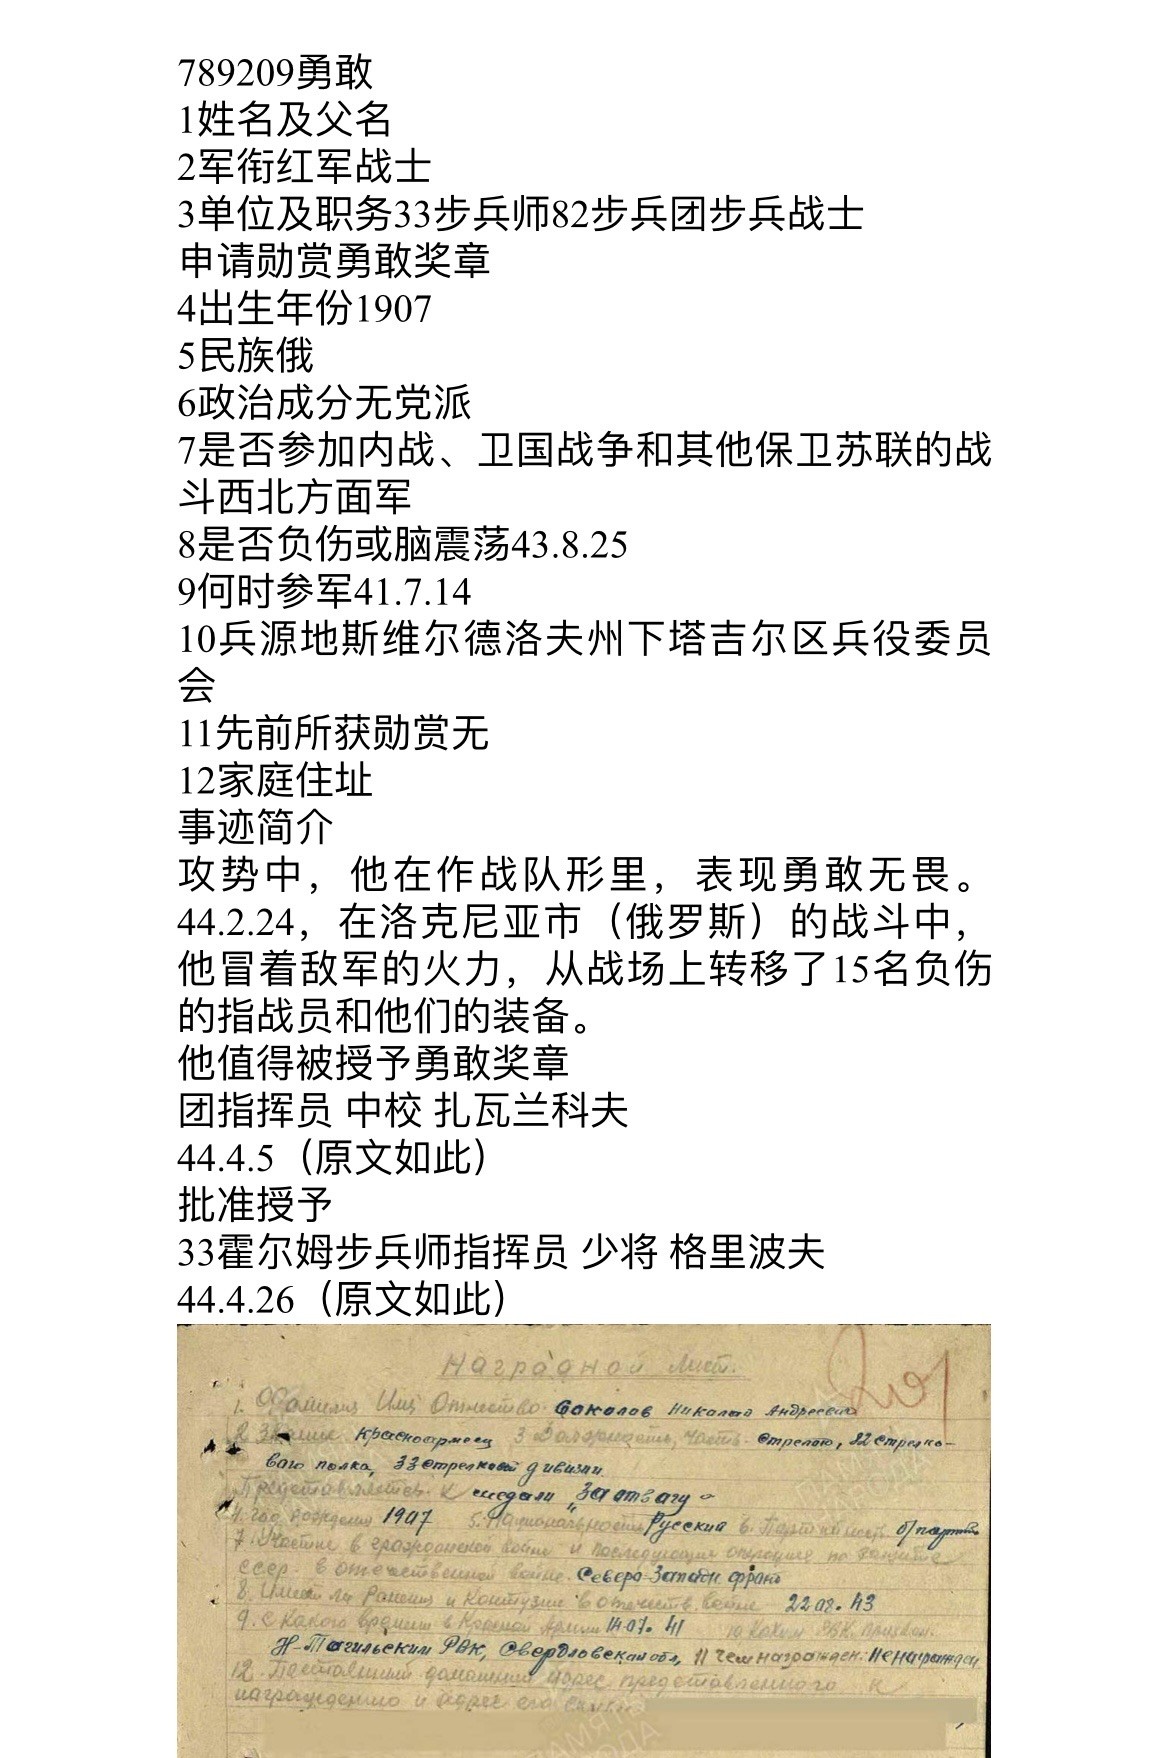 789209勇敢
1姓名及父名
2军衔红军战士
3单位及职务33步兵师82步兵团步兵战士
申请勋赏勇敢奖章
4出生年份1907
5民族俄
6政治成分无党派
7是否参加内战、卫国战争和其他保卫苏联的战
斗西北方面军
8是否负伤或脑震荡43.8.25
9何时参军41.7.14
10兵源地斯维尔德洛夫州下塔吉尔区兵役委员
会
11先前所获勋赏无
12家庭住址
事迹简介
攻势中，他在作战队形里，表现勇敢无畏。
44.2.24，在洛克尼亚市（俄罗斯）的战斗中，
他冒着敌军的火力，从战场上转移了15名负伤
的指战员和他们的装备。
他值得被授予勇敢奖章
团指挥员 中校 扎瓦兰科夫
44.4.5（原文如此）
批准授予
33霍尔姆步兵师指挥员 少将 格里波夫
44.4.26（原文如此）
Наградной лист.
1. Фамилия Имя Отчество Соколов Николай Андреевич
2 Звание Красноармеец 3 Должность, часть - стрелок, 82 стрелко-
вого полка, 33 стрелковой дивизии
Представляется к медали „За отвагу"
4. год рождения 1907 5. Национальность Русский 6. Партийность б/партий
7. Участие в гражданской войне и последующих операциях по защите
СССР. в отечественной войне. Северо-Западн фронт
8. Имеет ли Ранения и Контузии в отечеств. войне 22.08.43
9. С какого времени в Красной Армии 14.07.41 10 Каким РВК призван.
Н-Тагильским РВК, Свердловская обл, 11 Чем награжден: Не награжден
12. Постоянный домашний адрес представляемого к
награждению и адрес его семьи